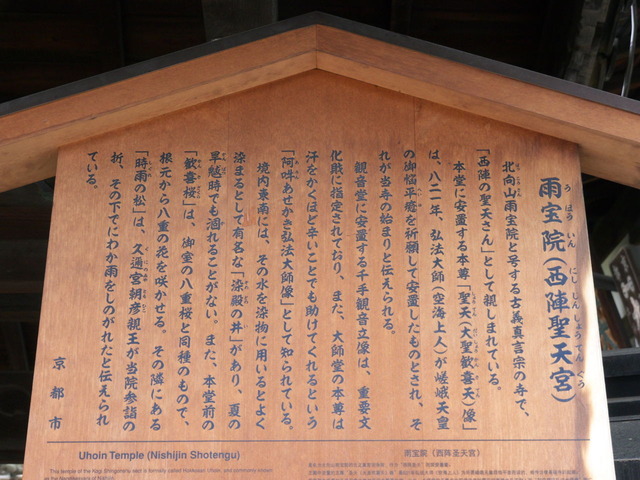 雨宝院（西陣聖天宮）
うほういん　にしじんしょうてんぐう
北向山雨宝院と号する古義真言宗の寺で、
「西陣の聖天さん」として親しまれている。
本堂に安置する本尊「聖天（大聖歓喜天）像」
は、八二一年、弘法大師（空海上人）が嵯峨天皇
の御悩平癒を祈願して安置したものとされ、そ
れが当寺の始まりと伝えられる。
観音堂に安置する千手観音立像は、重要文
化財に指定されており、また、大師堂の本尊は
汗をかくほど辛いことでも助けてくれるという
「阿吽あせかき弘法大師像」として知られている。
境内東南には、その水を染物に用いるとよく
染まるとして有名な「染殿の井」があり、夏の
旱魃時でも涸れることがない。また、本堂前の
「歓喜桜」は、御室の八重桜と同種のもので、
根元から八重の花を咲かせる。その隣にある
「時雨の松」は、久邇宮朝彦親王が当院参詣の
折、その下でにわか雨をしのがれたと伝えられ
ている。
京都市
Uhoin Temple (Nishijin Shotengu)
This temple of the Kogi Shingonshu sect is formally called Hokkosan Uhoin, and commonly known
雨宝院（西阵圣天宫）